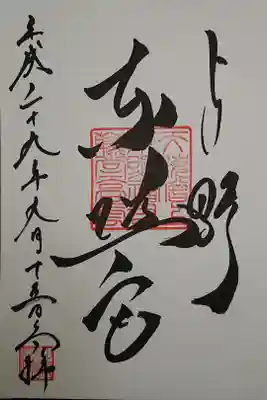 上野
東照宮
平成二十九年九月十五日 拝